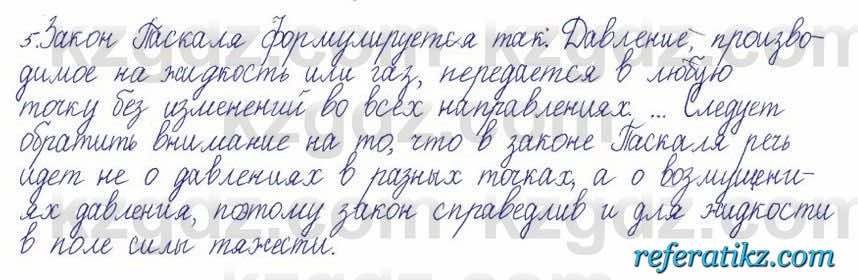 5. Закон Паскаля формулируется так: Давление, произво-
димое на жидкость или газ, передается в любую
точку без изменений во всех направлениях. ... Следует
обратить внимание на то, что в законе Паскаля речь
идет не о давлениях в разных точках, а о возмущени-
ях давления, поэтому закон справедлив и для жидкости
в поле силы тяжести.
referatikz.com